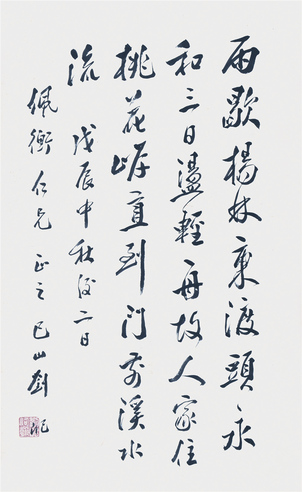 雨歇楊林東渡頭永
和三日盪輕舟故人家住
桃花岸直到門前溪水
流 戊辰中秋後二日
佩衡仁兄 正之 巴山劉